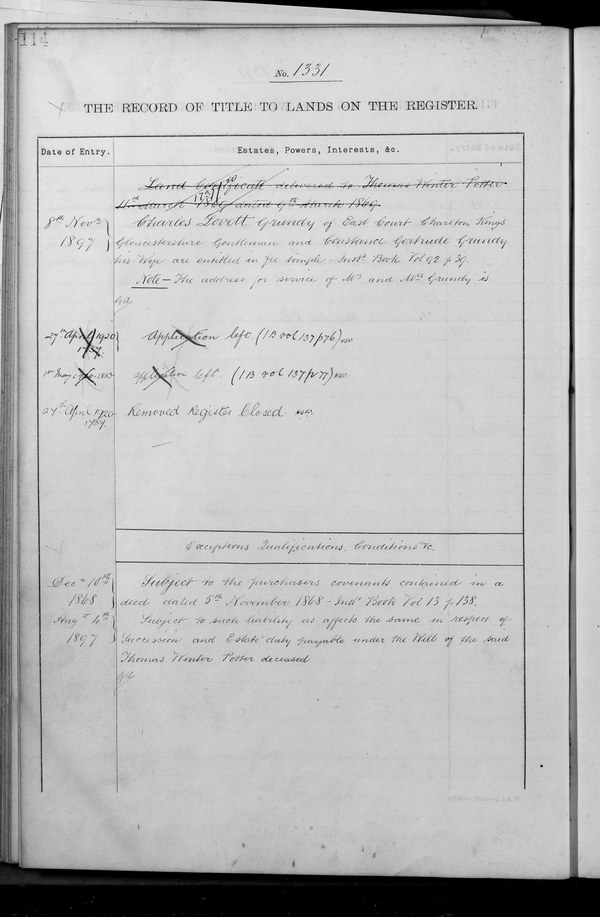 114
No. 1331
THE RECORD OF TITLE TO LANDS ON THE REGISTER.
Date of Entry.
Estates, Powers, Interests, &c.
Land Certificate delivered to Thomas Winter Potter
11th March 1869 dated 9th March 1869
8th Novr
1897
Charles Lovett Grundy of East Court Charlton Kings
Gloucestershire Gentleman and Constance Gertrude Grundy
his Wife are entitled in fee simple - Inst. Book Vol 92 p 39.
Note - The address for service of Mr and Mrs Grundy is
27th April 1920
1737
Application left. (1B vol 137 p76)
1st May 1920
application left. (1B vol 137 p 77)
27th April 1920
1737
Removed Register Closed
Exceptions Qualifications, Conditions &c.
Decr 10th
1868
Subject to the purchasers covenants contained in a
deed dated 5th November 1868 - Inst. Book Vol 13 p 138.
Augst 4th
1897
Subject to such liability as affects the same in respect of
Succession and Estate duty payable under the Will of the said
Thomas Winter Potter deceased